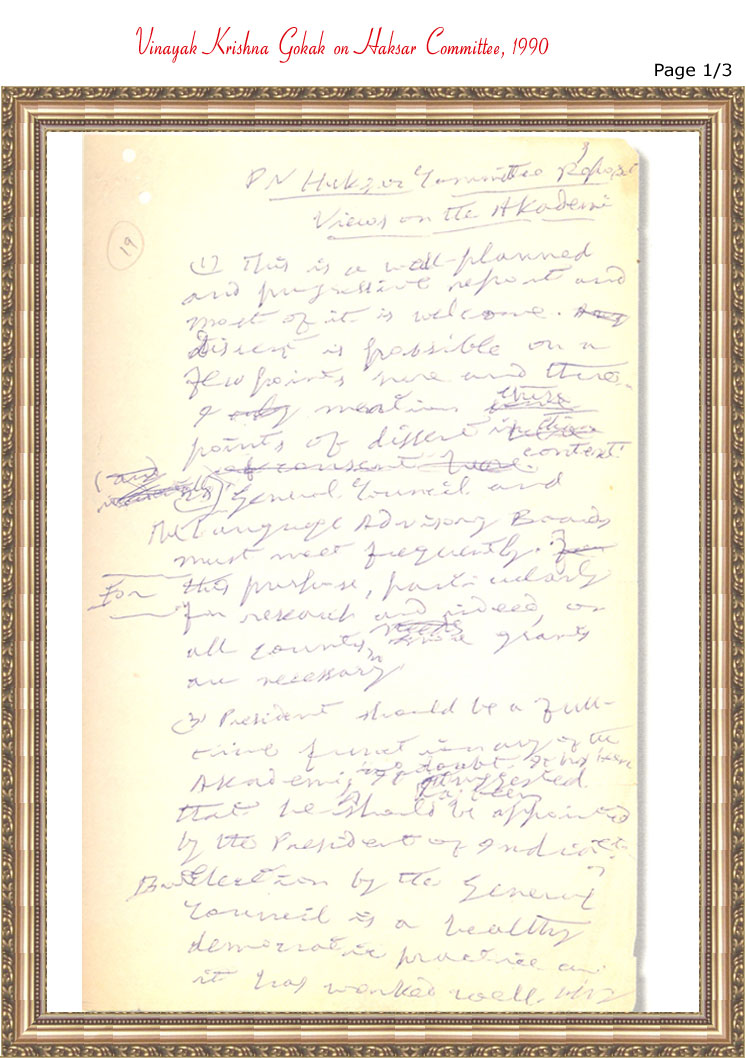 Vinayak Krishna Gokak on Haksar Committee, 1990
Page 1/3
PN Haksar Committee Report
Views on the Akademi
19
(1) This is a well-planned
and progressive report and
most of it is welcome.
Dissent is possible on a
few points here and there.
I only mention these
points of dissent in this
context.
of consent
(2) General Council and
the Language Advisory Boards
must meet frequently. For
For this purpose, particularly
for research and indeed, on
all counts, more grants
are necessary
(3) President should be a full-
time functionary of the
Akademi, no doubt. It has been
suggested
that he should be appointed
by the President of India
But Election by the General
Council is a healthy
democratic practice and
it has worked well.